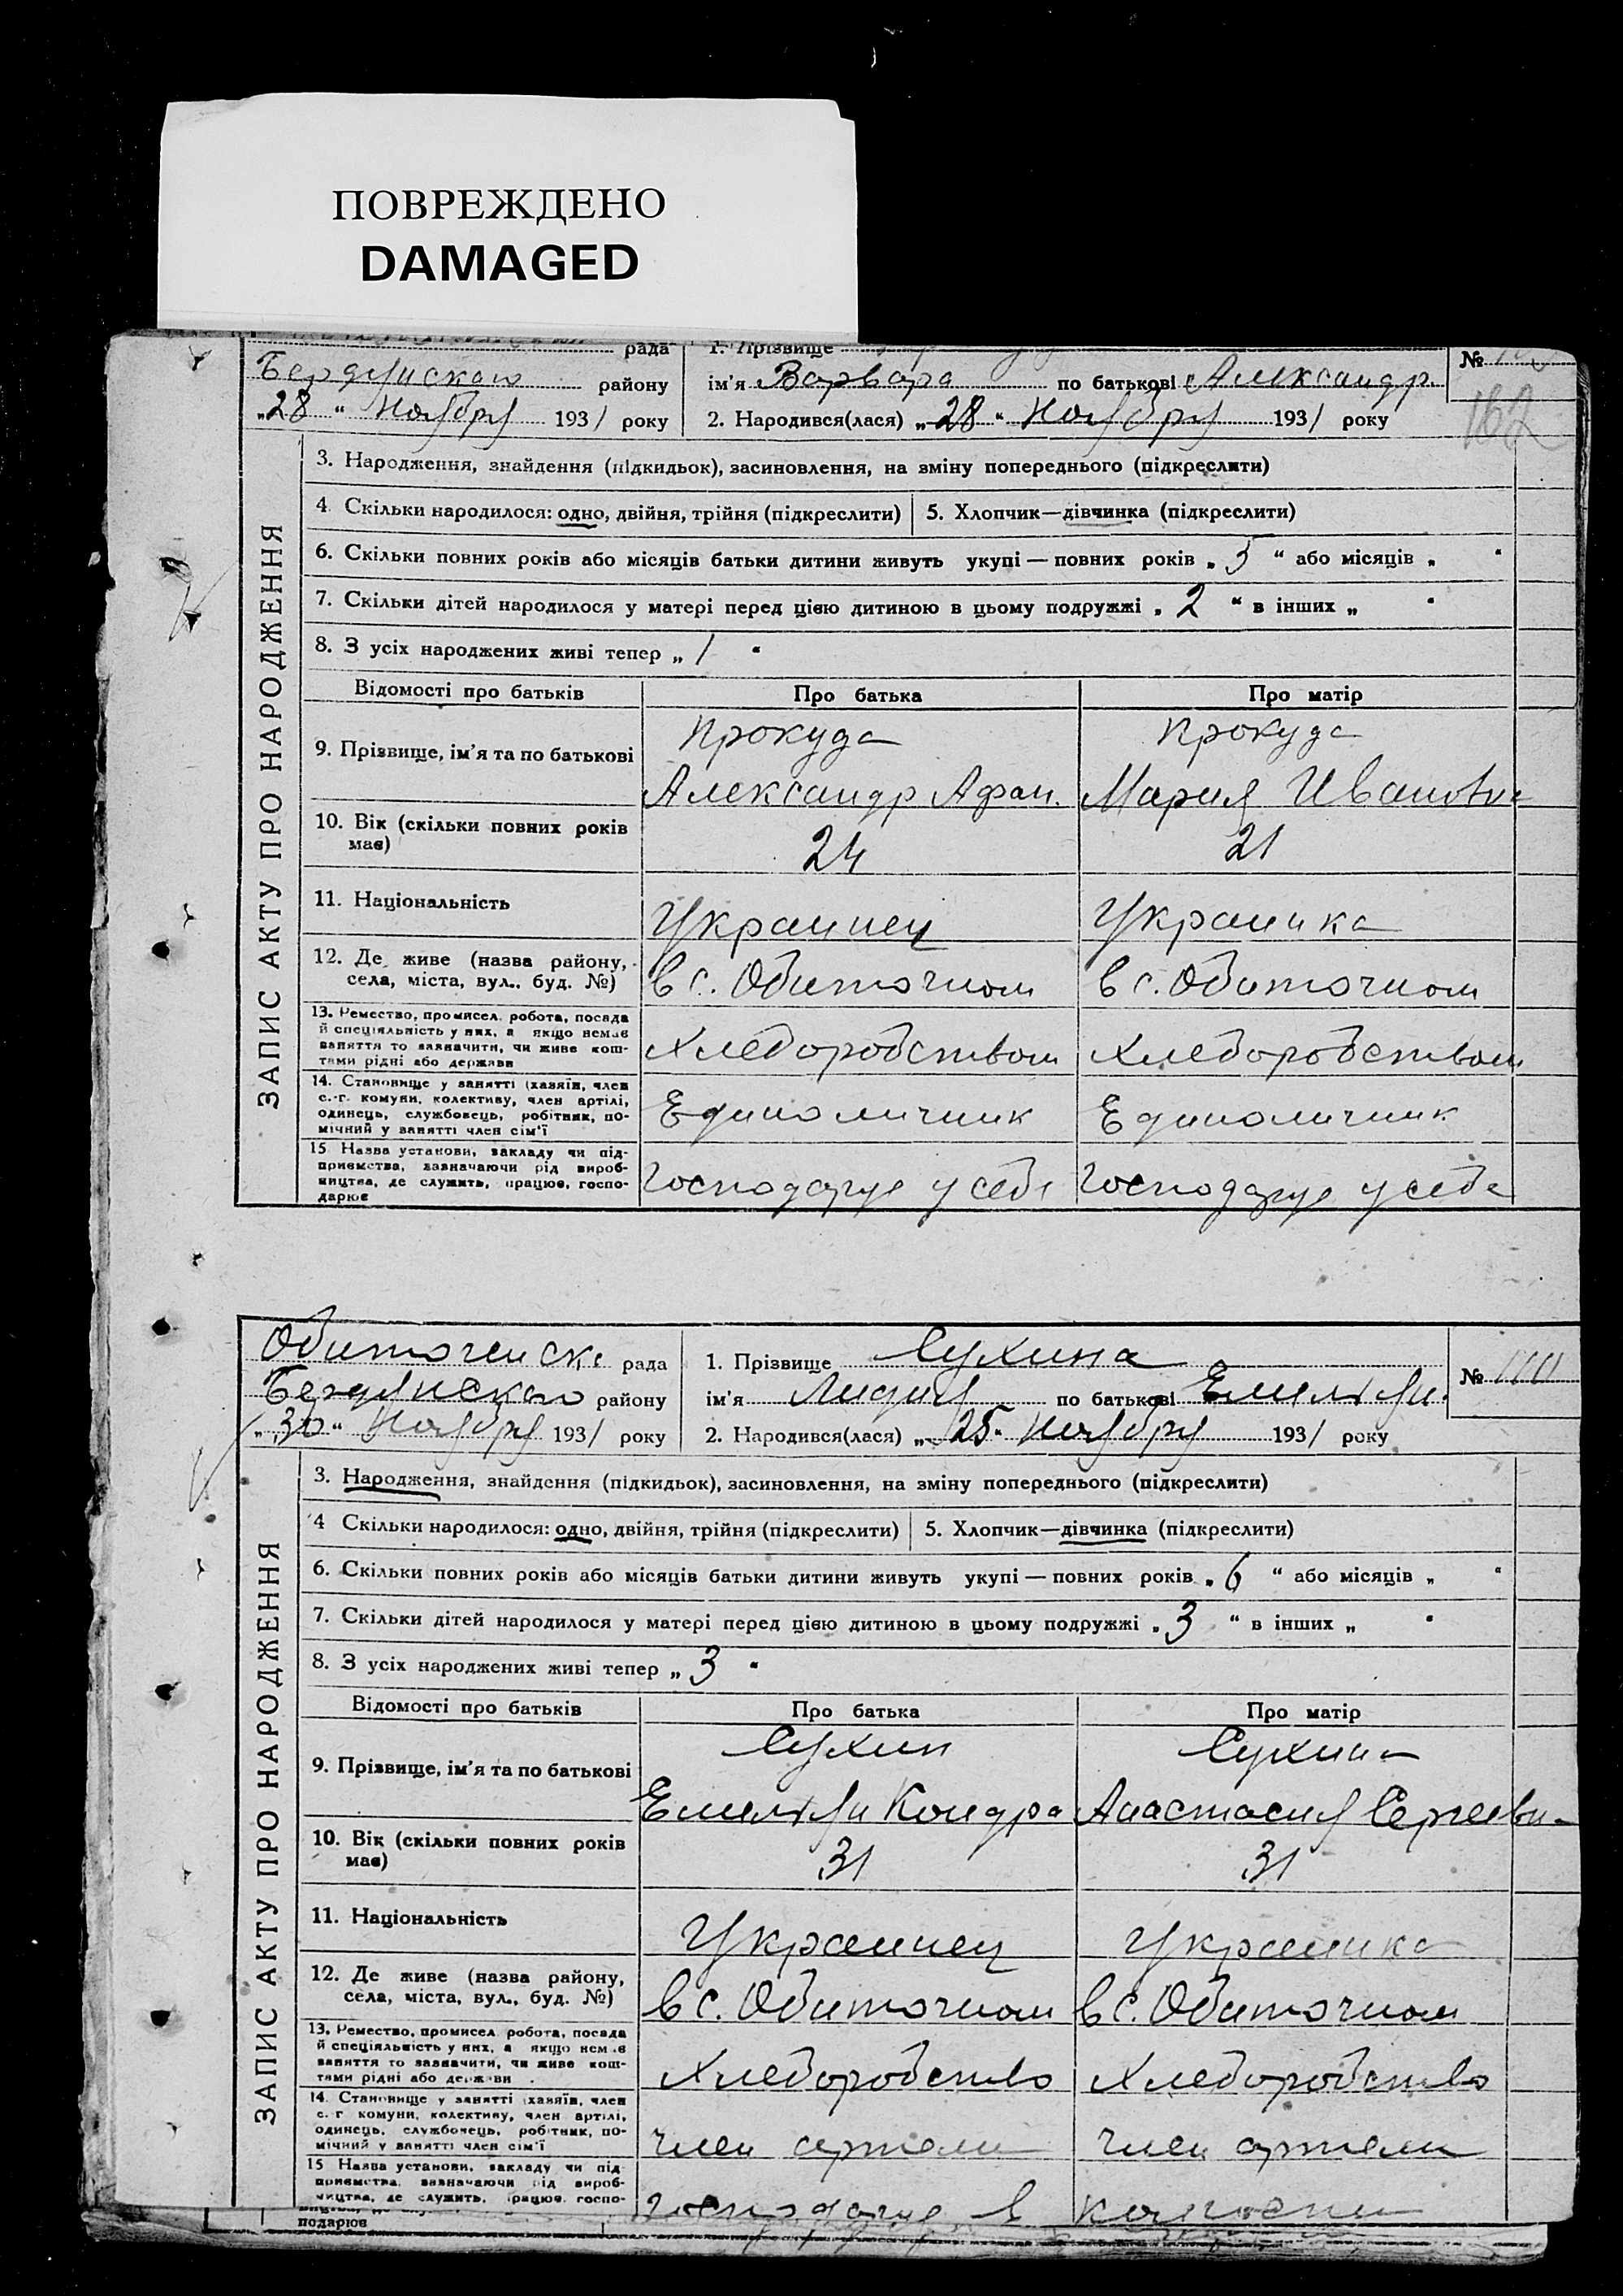 ПОВРЕЖДЕНО
DAMAGED
рада 1. Прізвище №
Бердянского району ім'я Варвара по батькові Александр.
„28“ Ноября 1931 року 2. Народився(лася) „28“ Ноября 1931 року
162
ЗАПИС АКТУ ПРО НАРОДЖЕННЯ
3. Народження, знайдення (підкидьок), засиновлення, на зміну попереднього (підкреслити)
4 Скільки народилося: одно, двійня, трійня (підкреслити) 5. Хлопчик—дівчинка (підкреслити)
6. Скільки повних років або місяців батьки дитини живуть укупі — повних років „ 5 “ або місяців „ “
7. Скільки дітей народилося у матері перед цією дитиною в цьому подружжі „ 2 “ в інших „ “
8. З усіх народжених живі тепер „ 1 “
Відомості про батьків Про батька Про матір
9. Прізвище, ім'я та по батькові Прокуда Прокуда
Александр Афан. Мария Ивановна
10. Вік (скільки повних років має) 24 21
11. Національність Украинец Украинка
12. Де живе (назва району, села, міста, вул., буд. №) в с. Обиточном в с. Обиточном
13. Ремество, промисел, робота, посада й спеціяльність у них, а якщо немає заняття то зазначити, чи живе коштами рідні або держави Хлеборобством Хлеборобством
14. Становище у занятті (хазяїн, член с.-г. комуни, колективу, член артілі, одинець, службовець, робітник, помічний у занятті член сім'ї Единоличник Единоличник
15 Назва установи, закладу чи підприємства, зазначаючи рід виробництва, де служить, працює, господарює Господарує у себе Господарує у себе
Обиточенск. рада 1. Прізвище Сухина №
Бердянского району ім'я Лидия по батькові Емельян.
„30“ Ноября 1931 року 2. Народився(лася) „25“ Ноября 1931 року
ЗАПИС АКТУ ПРО НАРОДЖЕННЯ
3. Народження, знайдення (підкидьок), засиновлення, на зміну попереднього (підкреслити)
4 Скільки народилося: одно, двійня, трійня (підкреслити) 5. Хлопчик—дівчинка (підкреслити)
6. Скільки повних років або місяців батьки дитини живуть укупі — повних років „ 6 “ або місяців „ “
7. Скільки дітей народилося у матері перед цією дитиною в цьому подружжі „ 3 “ в інших „ “
8. З усіх народжених живі тепер „ 3 “
Відомості про батьків Про батька Про матір
9. Прізвище, ім'я та по батькові Сухин Сухина
Емельян Кондра Анастасия Сергеевн
10. Вік (скільки повних років має) 31 31
11. Національність Украинец Украинка
12. Де живе (назва району, села, міста, вул., буд. №) в с. Обиточном в с. Обиточном
13. Ремество, промисел, робота, посада й спеціяльність у них, а якщо немає заняття то зазначити, чи живе коштами рідні або держави Хлеборобство Хлеборобство
14. Становище у занятті (хазяїн, член с.-г комуни, колективу, член артілі, одинець, службовець, робітник, помічний у занятті член сім'ї член артели член артели
15 Назва установи, закладу чи підприємства, зазначаючи рід виробництва, де служить, працює, госпо- Господарує в
подарює